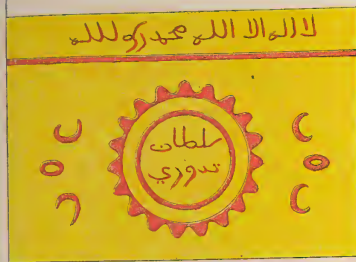 لا اله الا الله محمد رسول لله
سلطان
تدوري